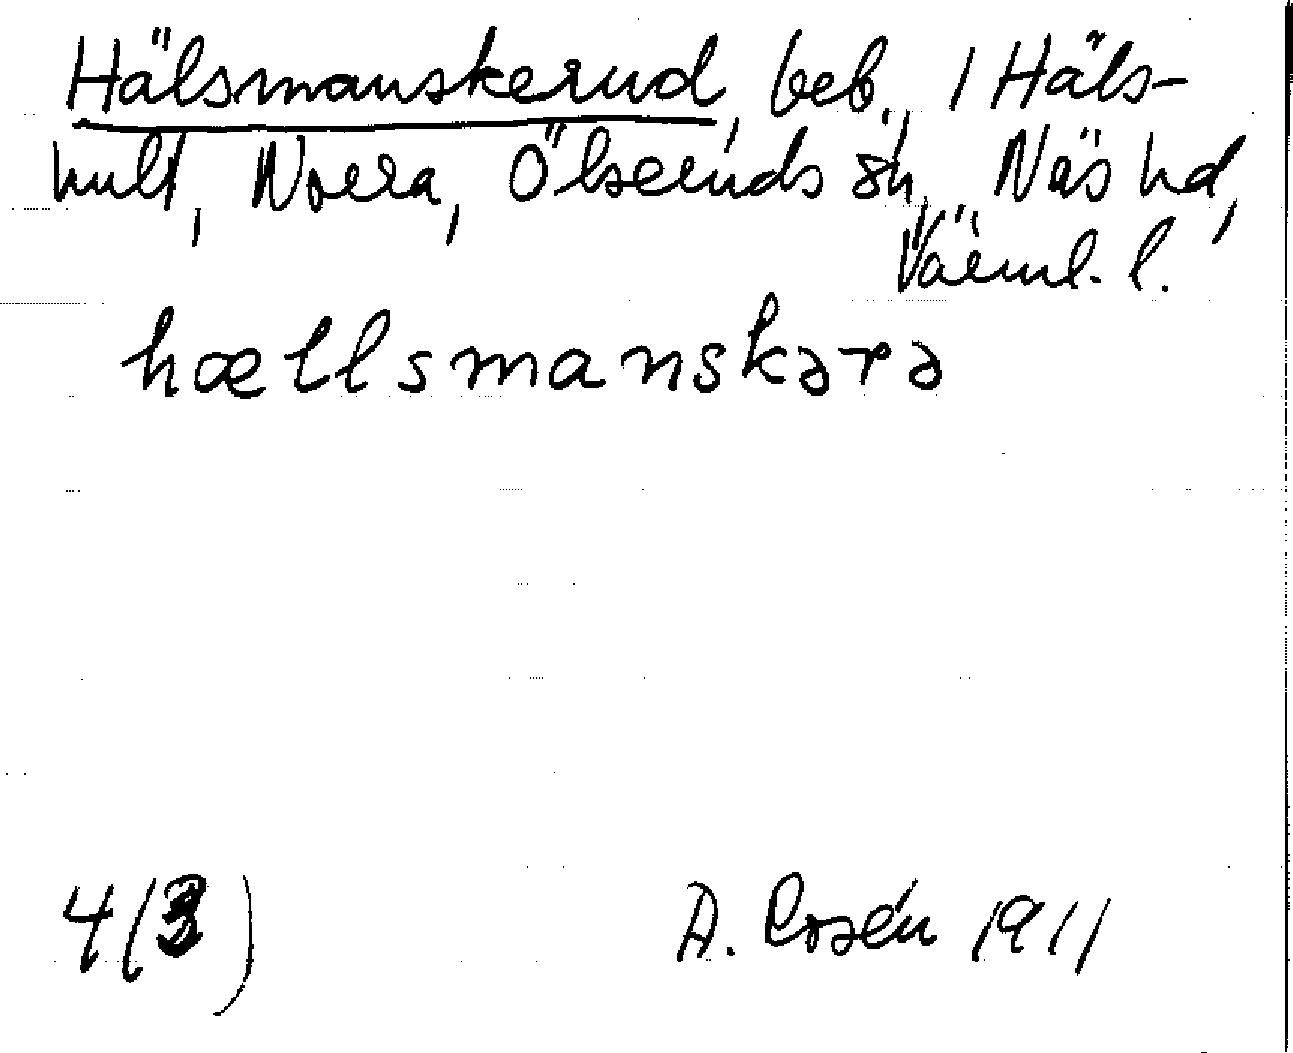 Hälsmanskerud, beb., 1 Häls-
hult, Norra, Ölseruds sn, Näs hd,
Värml. l.
hællsmanskərə
4(3) A. Rosén 1911